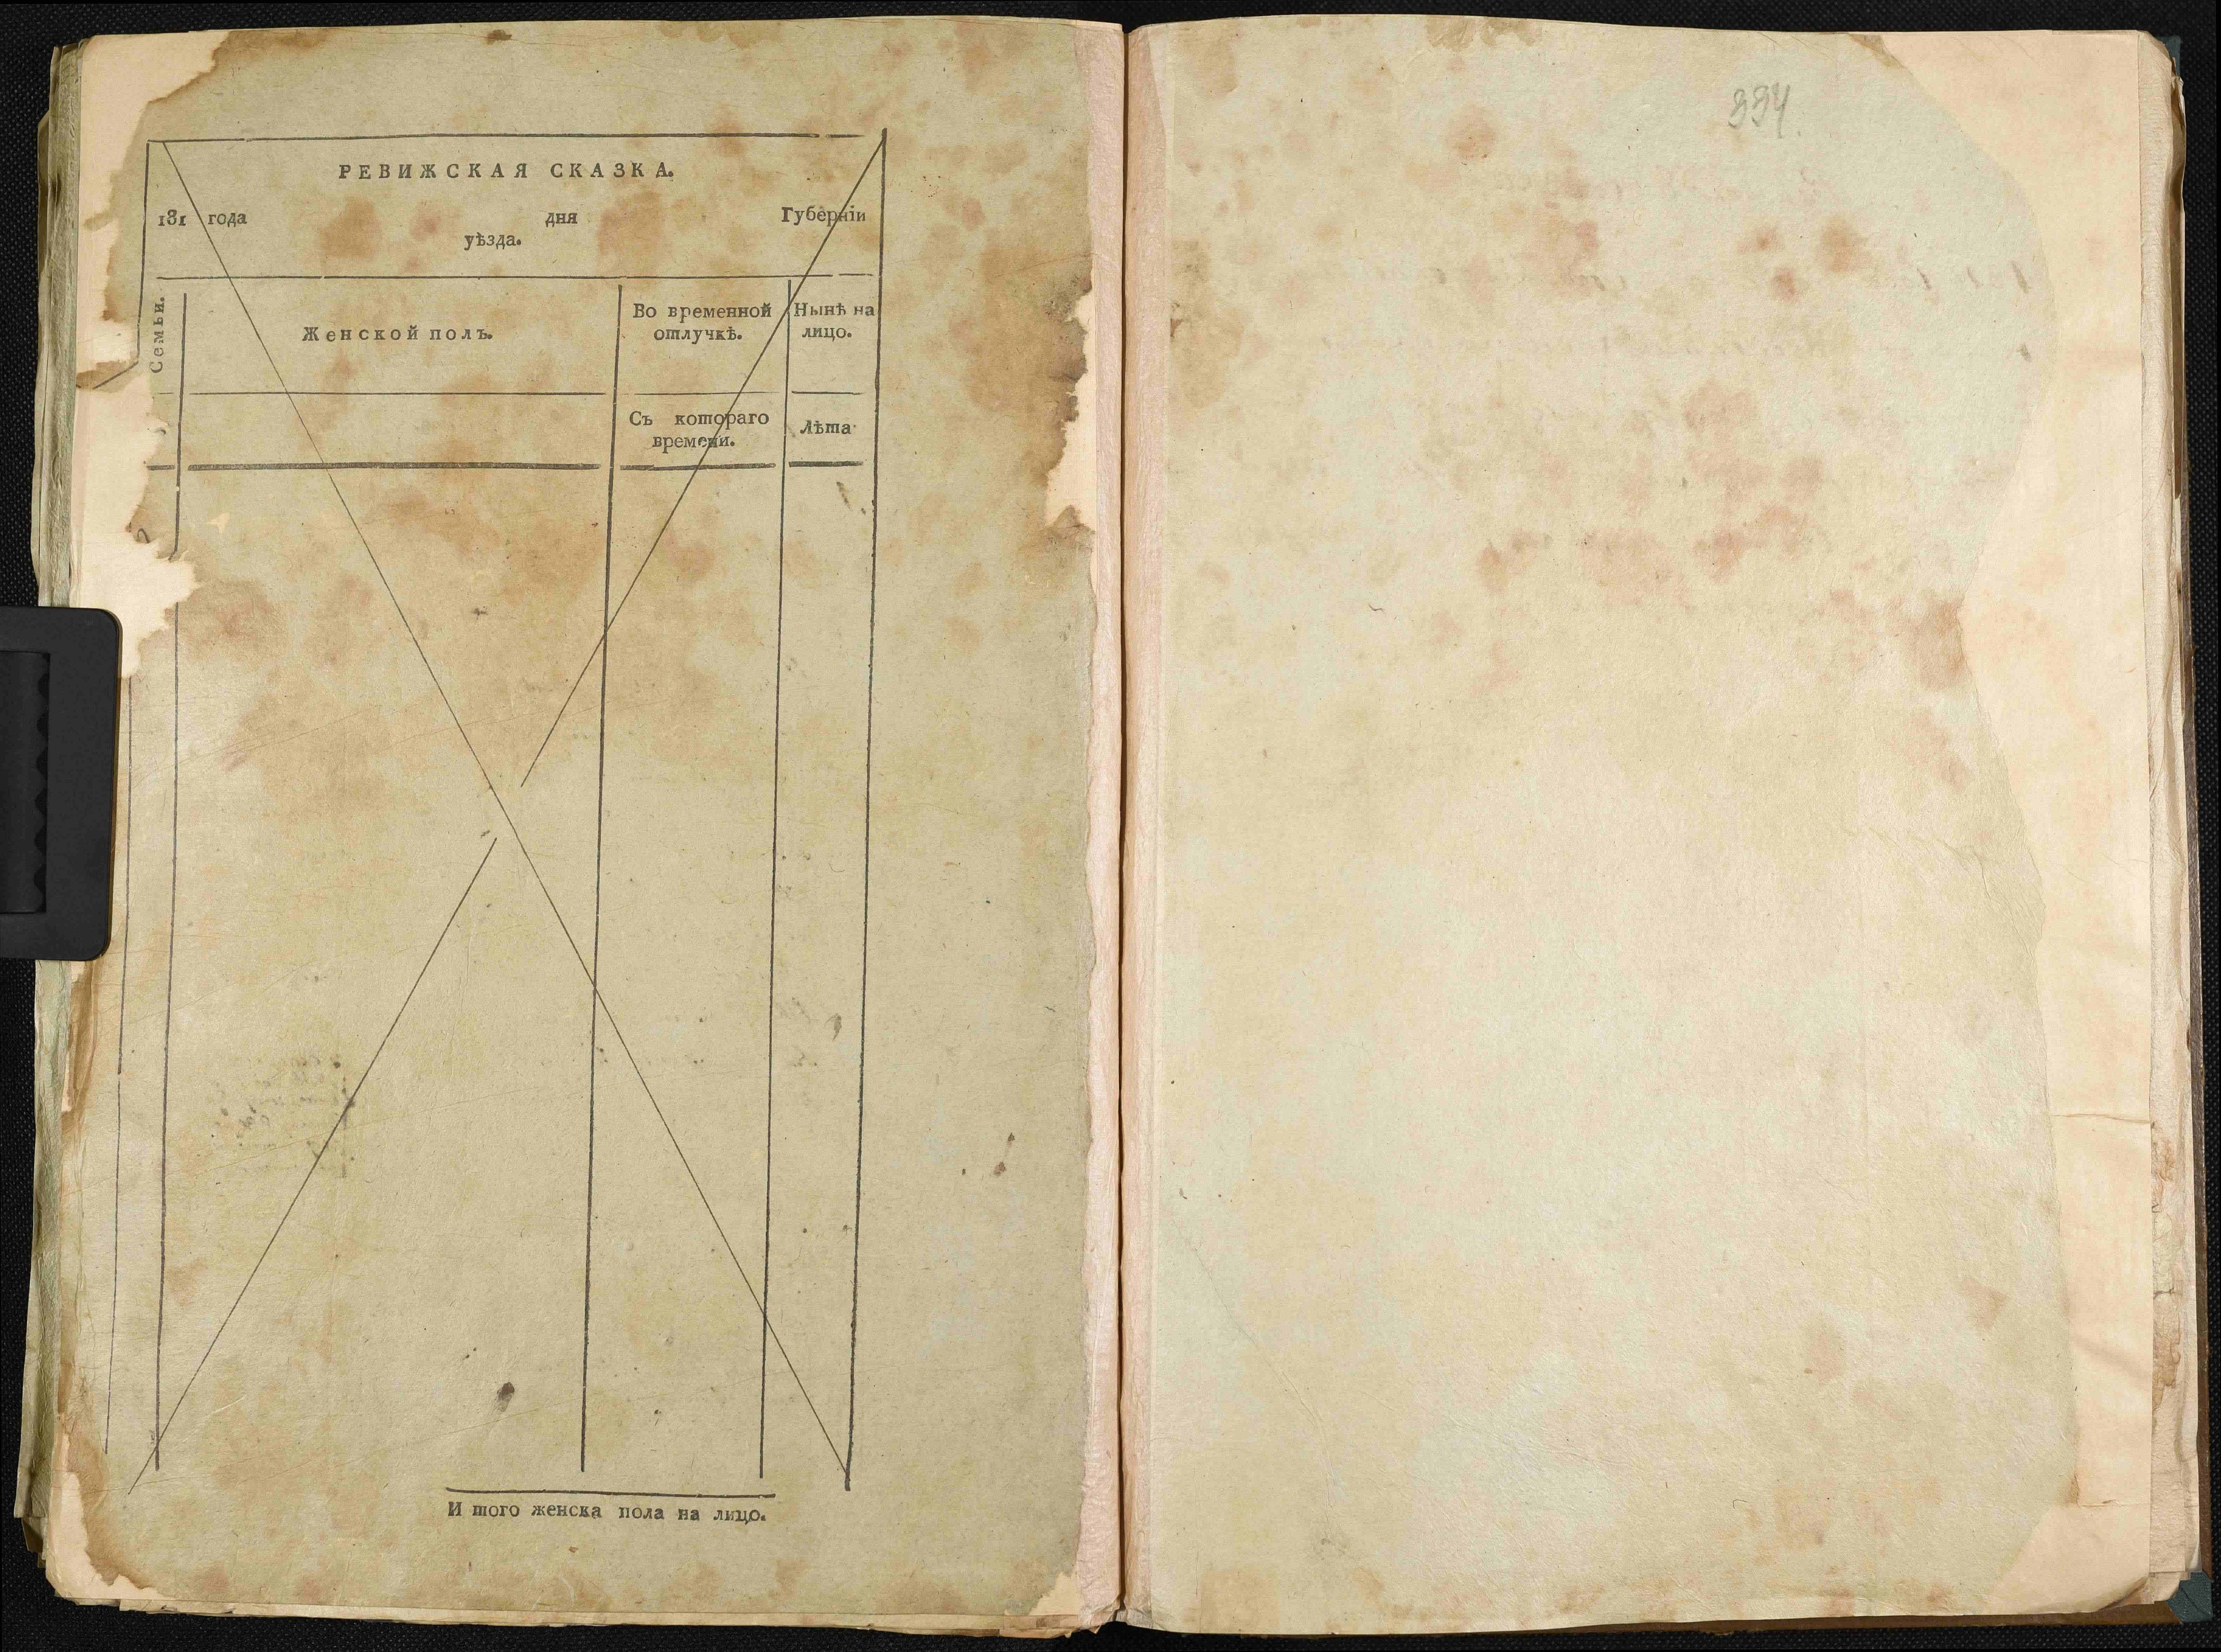 РЕВИЖСКАЯ СКАЗКА.
181 года дня Губерніи
уѣзда.
Семьи.
Женской полъ.
Во временной
отлучкѣ.
Нынѣ на
лицо.
Съ котораго
времени.
Лѣта
И того женска пола на лицо.
334.